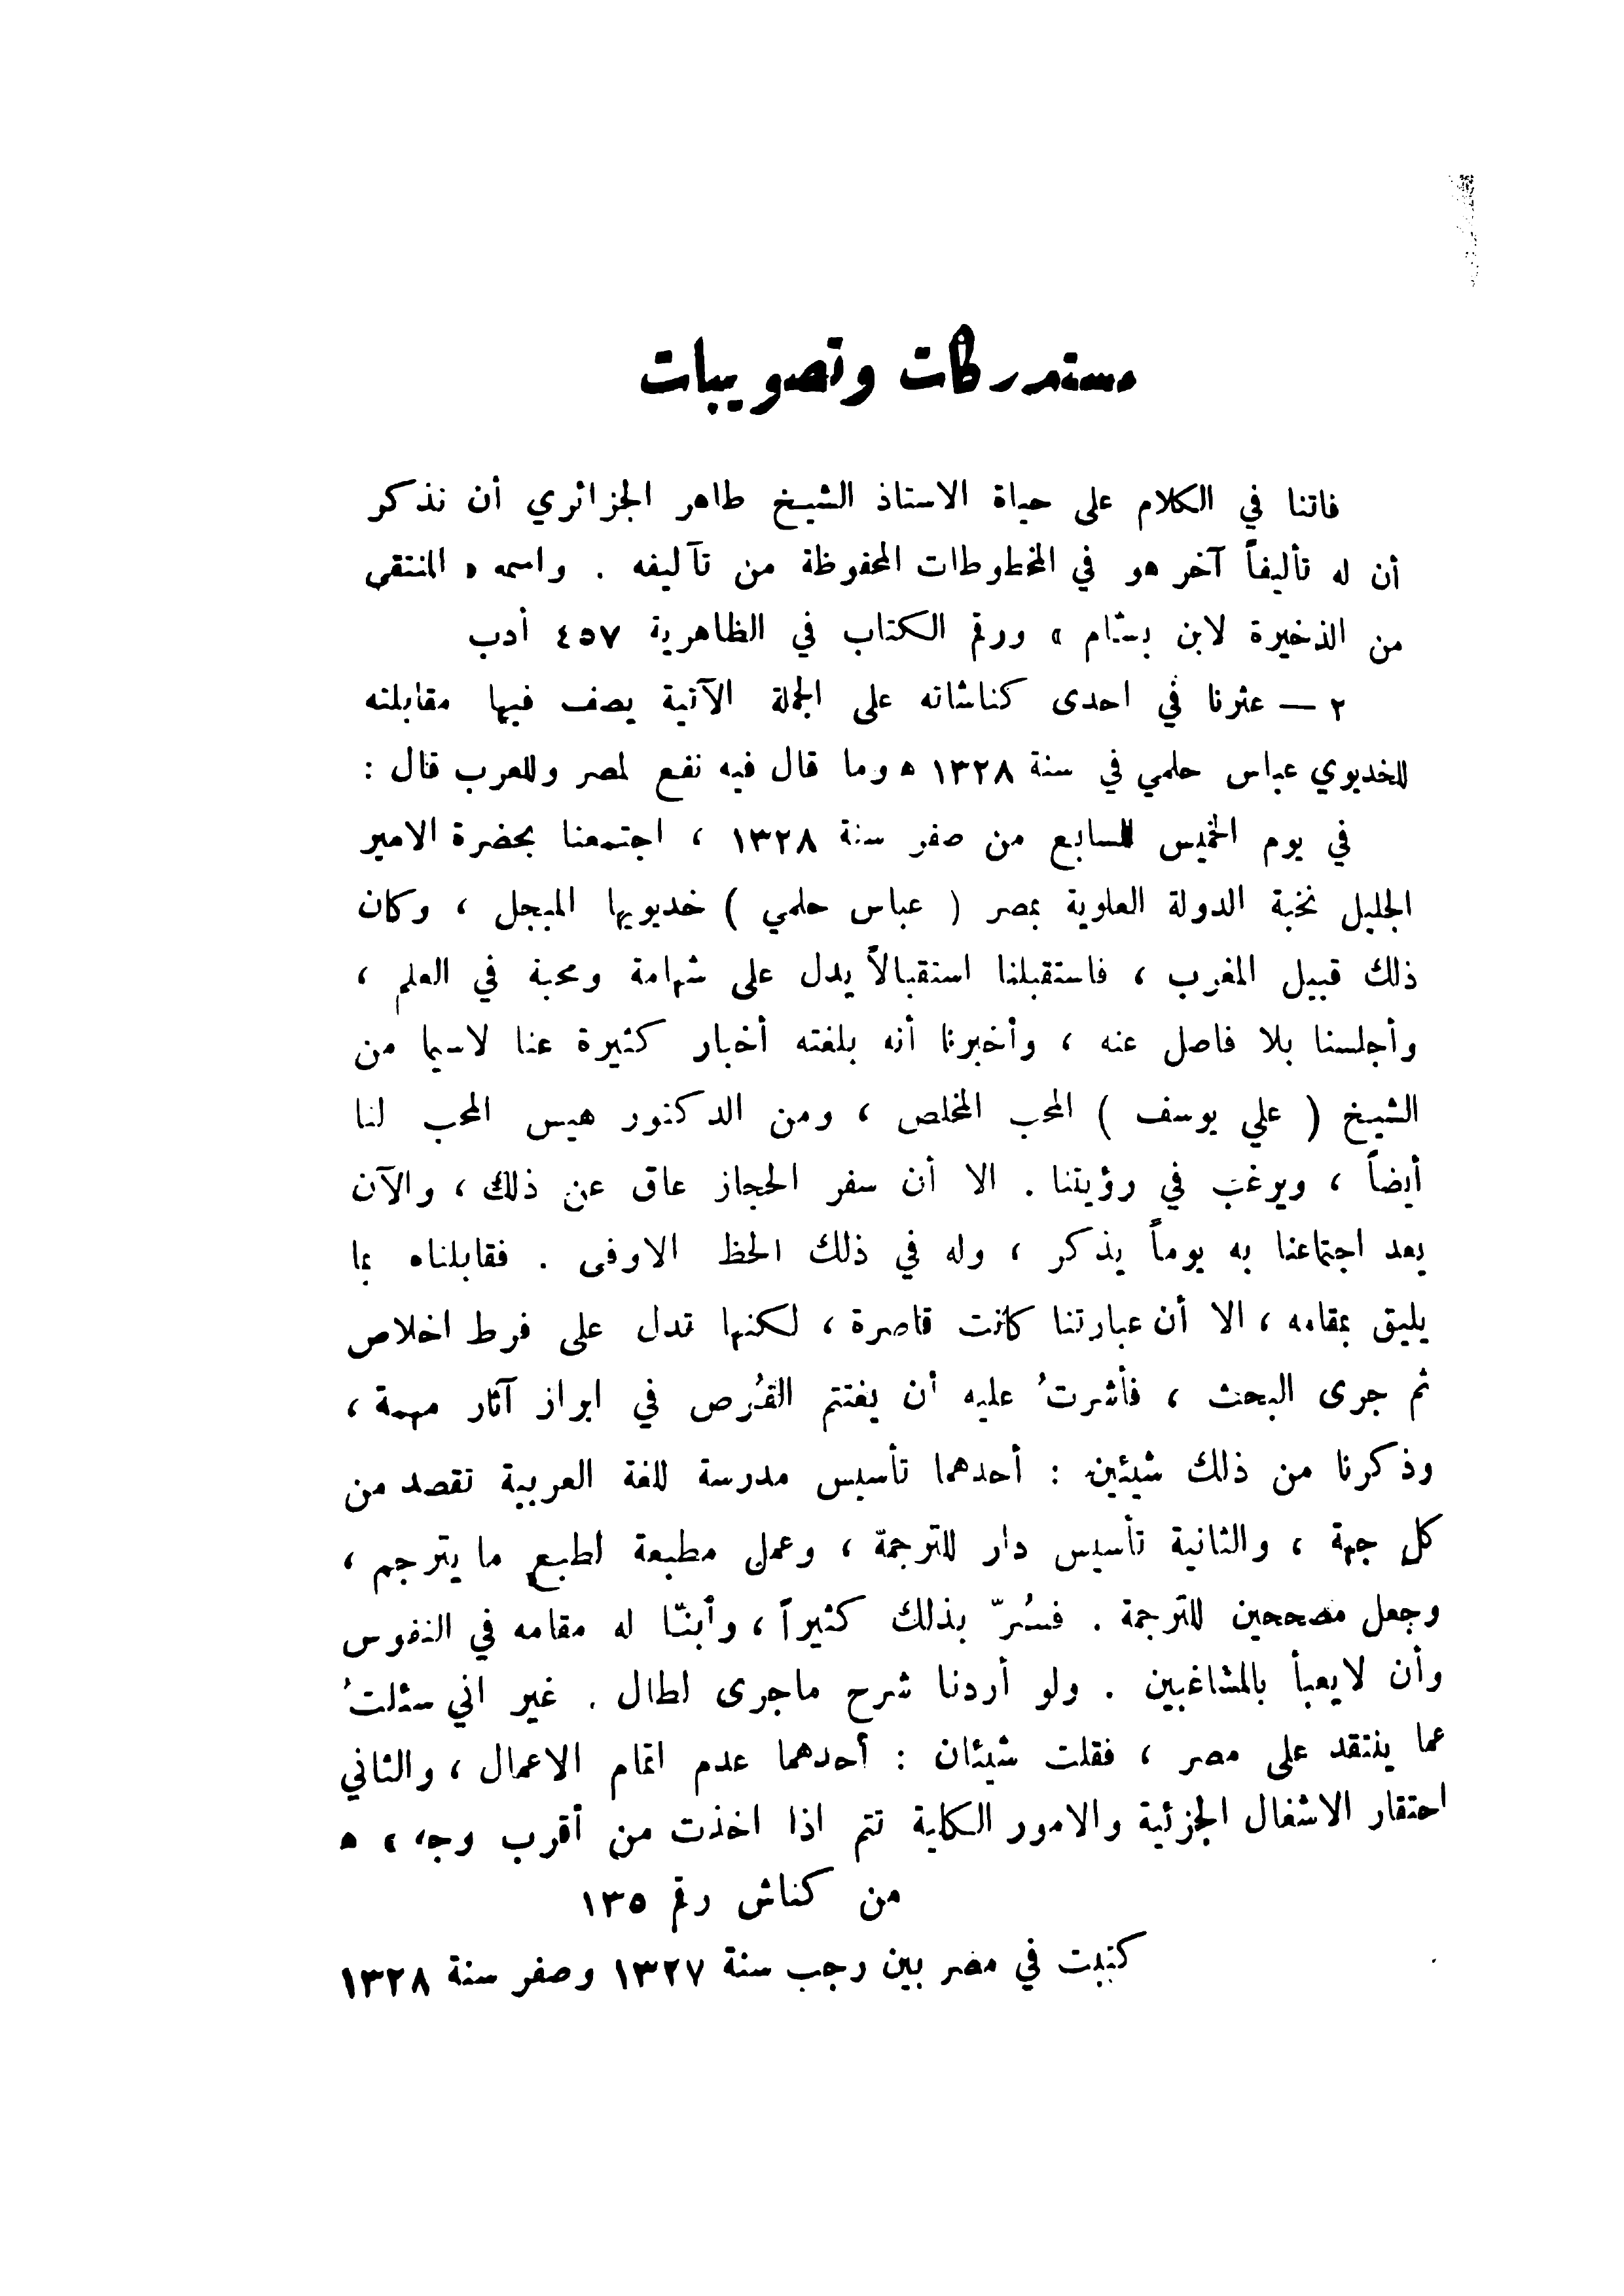 مستدركات وتصويبات
فاتنا في الكلام على حياة الاستاذ الشيخ طاهر الجزائري أن نذكر
أن له تأليفاً آخر هو في المخطوطات المحفوظة من تآليفه . واسمه « المنتقى
من الذخيرة لابن بسّام » ورقم الكتاب في الظاهرية ٤٥٧ أدب
٢ — عثرنا في احدى كناشاته على الجملة الآتية يصف فيها مقابلته
للخديوي عباس حلمي في سنة ١٣٢٨ ه وما قال فيه نفع لمصر وللعرب قال :
في يوم الخميس للسابع من صفر سنة ١٣٢٨ ، اجتمعنا بحضرة الامير
الجليل نخبة الدولة العلوية بمصر ( عباس حلمي ) خديويها المبجل ، وكان
ذلك قبيل المغرب ، فاستقبلنا استقبالاً يدل على شهامة ومحبة في العلم ،
وأجلسنا بلا فاصل عنه ، وأخبرنا أنه بلغته أخبار كثيرة عنا لاسيما من
الشيخ ( علي يوسف ) المحب المخلص ، ومن الدكتور هيس المحب لنا
أيضاً ، ويرغب في رؤيتنا . الا أن سفر الحجاز عاق عن ذلك ، والآن
يعد اجتماعنا به يوماً يذكر ، وله في ذلك الحظ الاوفى . فقابلناه بما
يليق بمقامه ، الا أن عبارتنا كانت قاصرة ، لكنها تدل على فرط اخلاص
ثم جرى البحث ، فأشرتُ عليه أن يغتنم الفُرص في ابراز آثار مهمة ،
وذكرنا من ذلك شيئين : أحدهما تأسيس مدرسة للغة العربية تقصد من
كل جهة ، والثانية تأسيس دار للترجمة ، وعمل مطبعة لطبع ما يترجم ،
وجعل مصححين للترجمة . فسُرّ بذلك كثيراً ، وأبنّا له مقامه في النفوس
وأن لايعبأ بالمشاغبين . ولو أردنا شرح ماجرى لطال . غير اني سئلتُ
عما ينتقد على مصر ، فقلت شيئان : أحدهما عدم اتمام الاعمال ، والثاني
احتقار الاشغال الجزئية والامور الكلية تتم اذا اخذت من أقرب وجه ، ه
من كناش رقم ١٣٥
كتبت في مصر بين رجب سنة ١٣٢٧ وصفر سنة ١٣٢٨